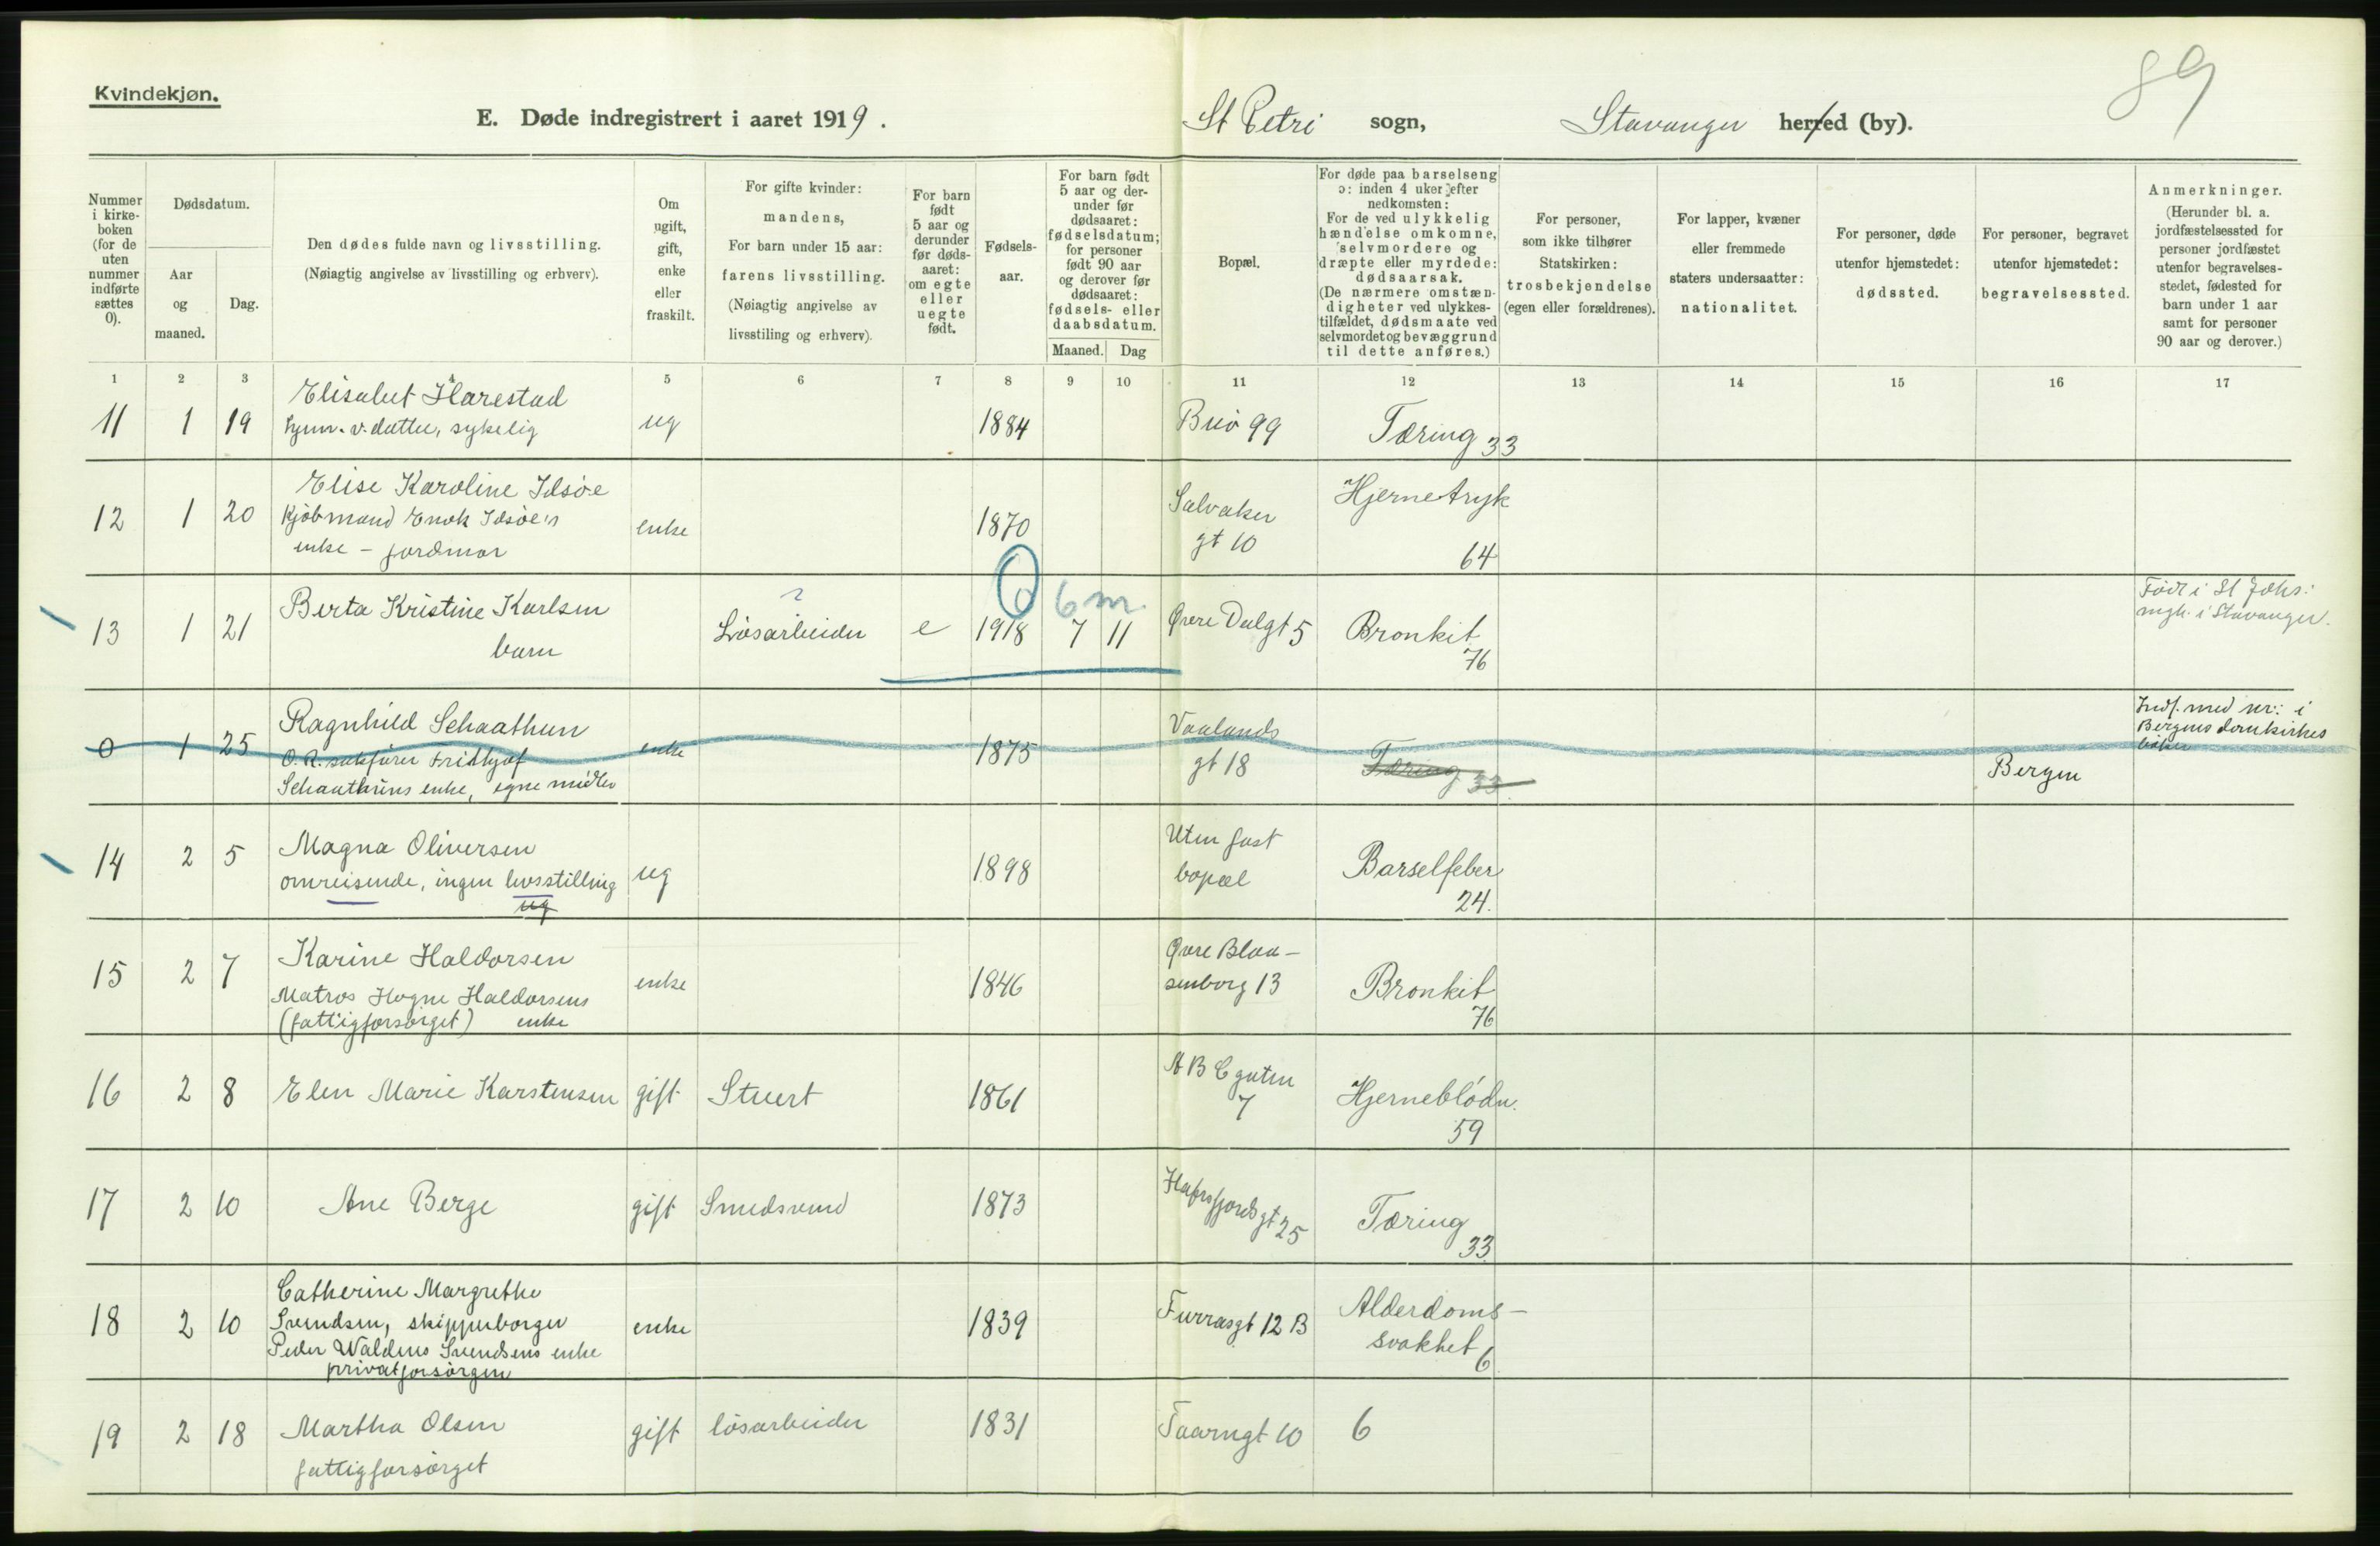 89
Kvindekjøn.
E. Døde indregistrert i aaret 1919.
St Petri sogn, Stavanger herred (by).
Nummer i kirkeboken (for de uten nummer indførte sættes 0).
Dødsdatum.
Aar og maaned.
Dag.
Den dødes fulde navn og livsstilling.
(Nøiagtig angivelse av livsstilling og erhverv).
Om ugift, gift, enke eller fraskilt.
For gifte kvinder:
mandens,
For barn under 15 aar:
farens livsstilling.
(Nøiagtig angivelse av
livsstiling og erhverv).
For barn født 5 aar og derunder før dødsaaret: om egte eller uegte født.
Fødselsaar.
For barn født 5 aar og derunder før dødsaaret: fødselsdatum; for personer født 90 aar og derover før dødsaaret: fødsels- eller daabsdatum.
Maaned. Dag
Bopæl.
For døde paa barselseng
ɔ: inden 4 uker efter
nedkomsten:
For de ved ulykkelig
hændelse omkomne,
selvmordere og
dræpte eller myrdede:
dødsaarsak.
(De nærmere omstæn-
digheter ved ulykkes-
tilfældet, dødsmaate ved
selvmordet og bevæggrund
til dette anføres.)
For personer,
som ikke tilhører
Statskirken:
trosbekjendelse
(egen eller forældrenes).
For lapper, kvæner
eller fremmede
staters undersaatter:
nationalitet.
For personer, døde
utenfor hjemstedet:
dødssted.
For personer, begravet
utenfor hjemstedet:
begravelsessted.
Anmerkninger.
(Herunder bl. a.
jordfæstelsessted for
personer jordfæstet
utenfor begravelses-
stedet, fødested for
barn under 1 aar
samt for personer
90 aar og derover.)
1 2 3 4 5 6 7 8 9 10 11 12 13 14 15 16 17
Elisabet Harestad
11 1 19 hjem. v. datter, sykelig ug 1884 Buø 99 Tæring 33
Elise Karoline Idsøe
12 1 20 Kjøbmand Enok Idsøe's enke 1870 Salvaker Hjernetryk
enke – jordmor gt 10 64
0 6 m.
Berta Kristine Karlsen ? Født i St Johs:
13 1 21 Løsarbeider e 1918 7 11 Øvre Dalgt 5 Bronkit mgh. i Stavanger.
barn 76
Ragnhild Schaathun Vaalands Indf. med nr: i
0 1 25 O.R. sakfører Fridtjof enke 1875 gt 18 Tæring 33 Bergens domkirkes
Schaathuns enke, egne midler Bergen bøker
14 2 5 Magna Oliversen Uten fast
omreisende, ingen livsstilling ug 1898 bopæl Barselfeber
ug 24.
15 2 7 Karine Haldorsen Øvre Blaa-
Matros Hogne Haldorsens enke 1846 senborg 13 Bronkit
(fattigforsørget) enke 76
16 2 8 Elen Marie Karstensen gift Stuert 1861 A B C gaten Hjerneblødn.
7 59
17 2 10 Ane Berge gift Smedsvend 1873 Hafrsfjords gt 25 Tæring
33
Catherine Margrethe
18 2 10 Svendsen, skipperborger enke 1839 Furrasgt 12 B Alderdoms-
Peder Waldens Svendsens enke svakhet 6
privatforsørgen
19 2 18 Martha Olsen gift løsarbeider 1831 Taarngt 10 6
fattigforsørget